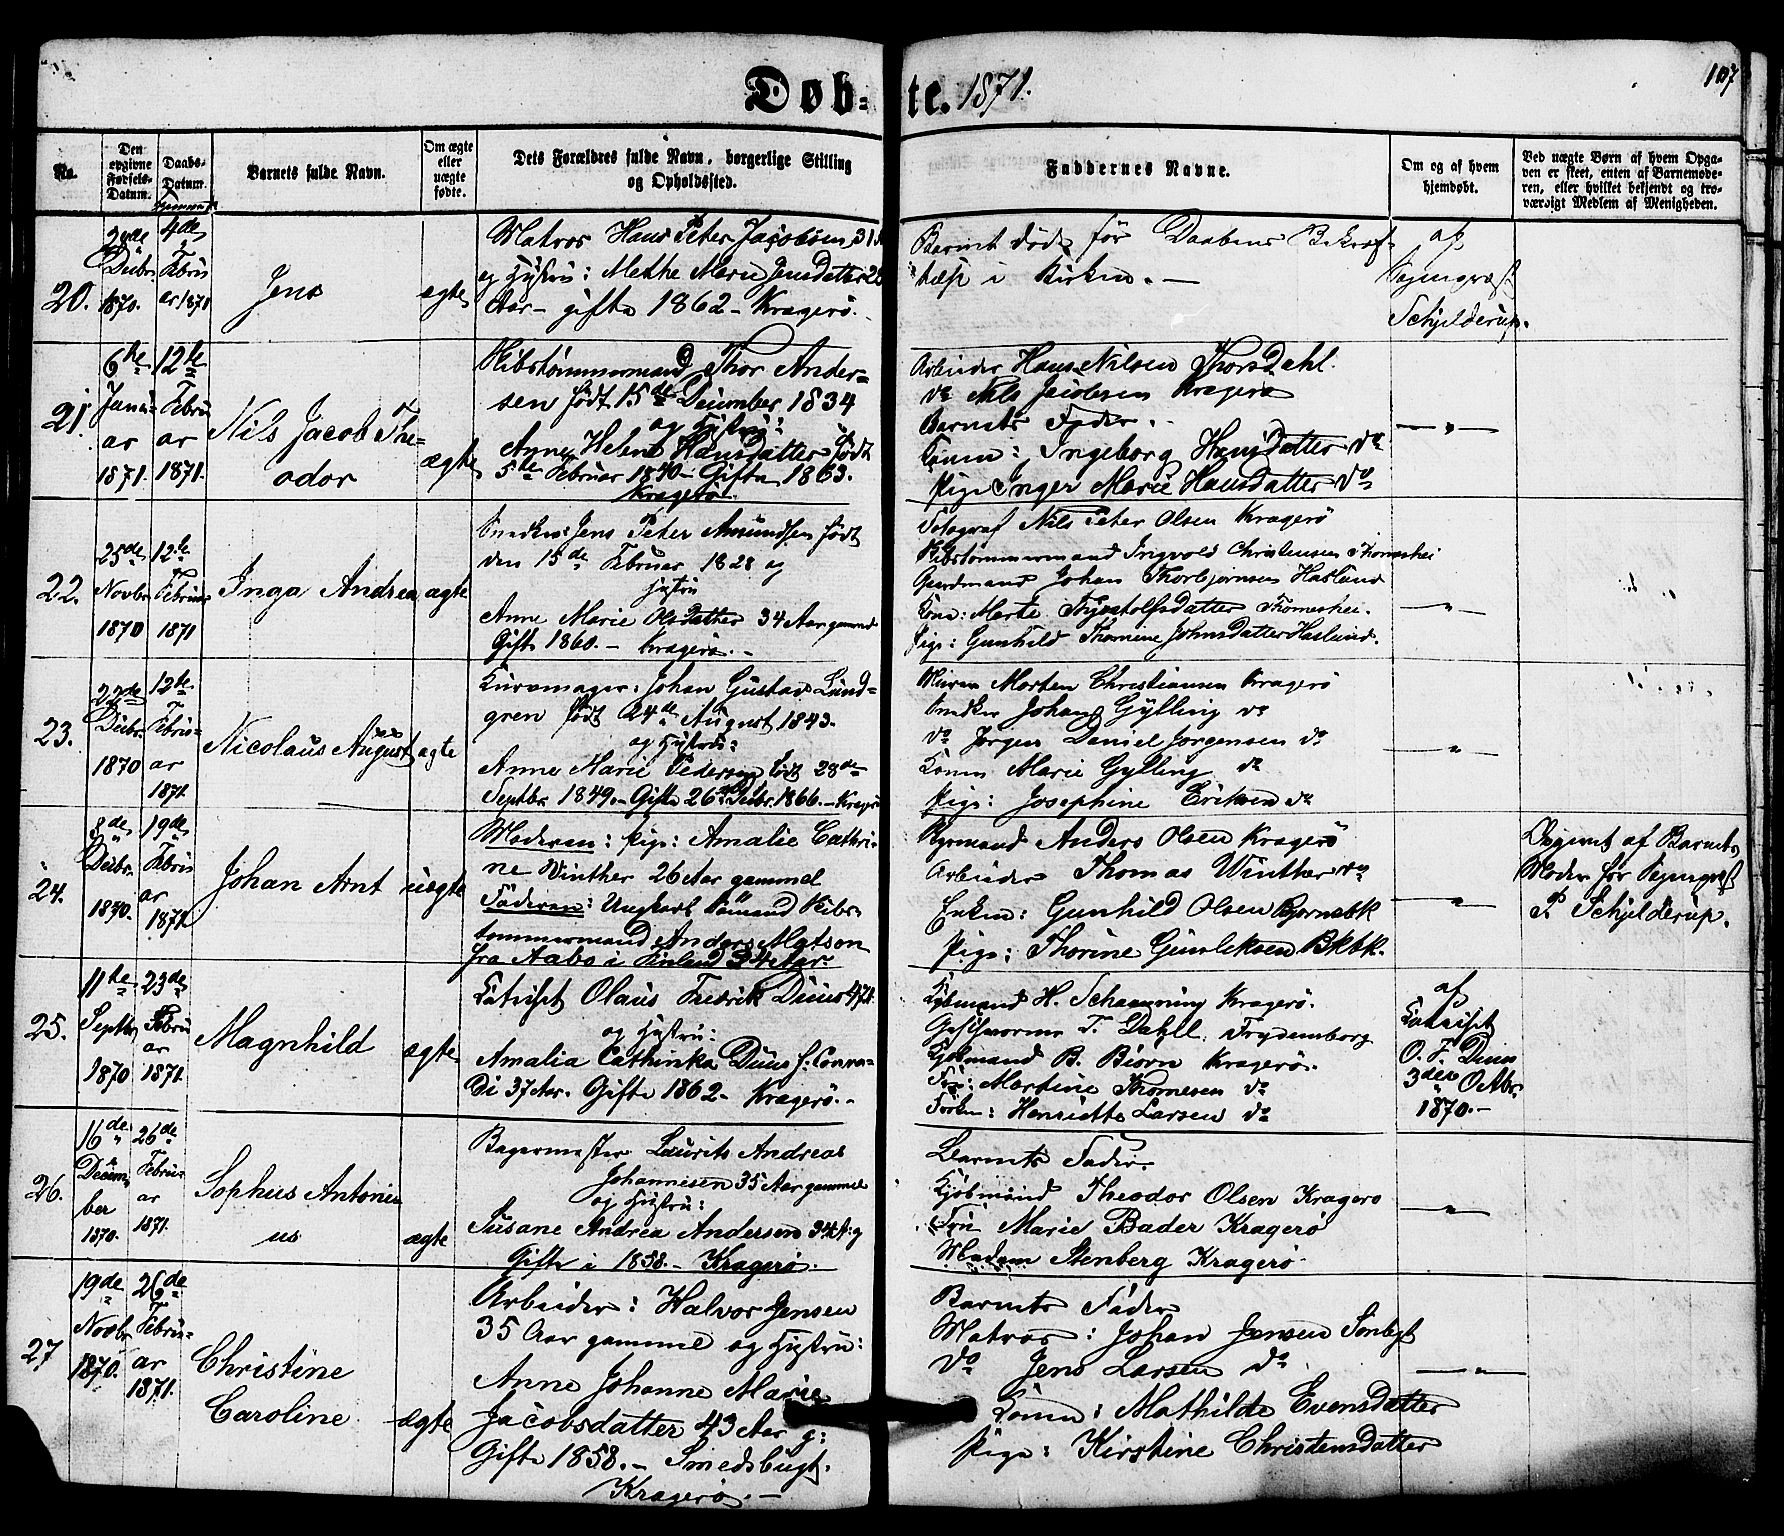 107
Døb-te. 1871.
No.
Den opgivne Fødsels-Datum.
Daabs-Datum.
Barnets fulde Navn.
Om ægte eller uægte fødte.
Dets Forældres fulde Navn, borgerlige Stilling og Opholdssted.
Faddernes Navne.
Om og af hvem hjemdøbt.
Ved uægte Børn af hvem Opgaven er skeet, enten af Barnemoderen, eller hvilket bekjendt og troværdigt Medlem af Menigheden.
20.
Decbr. 1870.
4de Februar 1871
Jens
ægte
Matros Hans Peter Jacobsen 31
og Hustru: Methe Marie Jensdatter 28
Aar - gifte 1862 - Kragerø.
Barnet døde før Daabens Bekræf-
telse i Kirken. —
af
Schjelderup.
21.
6te Januar 1871.
12te Februar 1871.
Nils Jacob The-
odor
ægte
Skibstømmermand Thor Ander-
sen født 15de December 1834
og Hustru:
Anne Helene Hansdatter født
5te Februar 1840 - Gifte 1863.
Kragerø.
Arbeider Hans Nilsen Thorsdahl.
do Nils Jacobsen Kragerø
Barnets Fader.
Konen: Ingeborg Hansdatter do
Pige Inger Marie Hansdatter do
— " —
22.
25de Novbr. 1870
12te Februar 1871
Inga Andrea
ægte
Snedker: Jens Peter Amundsen født
den 15de Februar 1828 og
Hustru
Anne Marie Olsdatter 34 Aar gammel
Gifte 1860. - Kragerø. -
Fotograf Nils Peter Olsen Kragerø
Skibstømmermand Ingvold Christensen Thomeshei
Gaardmand Johan Thorbjørnsen Haslund
Kone: Marte Tjøstolfsdatter Thomeshei.
Pige: Gunhild Thomine Johnsdatter Haslund.
— " —
23.
22de Decbr. 1870
12te Februar 1871.
Nicolaus August
ægte
Kurvmager: Johan Gustav Lund-
gren født 24de August 1843.
og Hustru:
Anne Marie Pedersen født 28de
Septbr 1849. - Gifte 26de Decbr. 1866. - Kragerø
Murer Morten Christiansen Kragerø
Snedker Johan Gylling do
do Jørgen Daniel Jørgensen do
Konen Marie Gylling do
Pige: Josephine Eriksen do
— " —
24.
8de Decbr. 1870.
19de Februar 1871.
Johan Arnt
uægte
Moderen: Pige: Amalie Cathri-
ne Winther 26 Aar gammel
Faderen: Ungkarl Sømand Skibs-
tømmermand Anders Matson
fra Aabo i Finland 34 Aar.
Styrmand Anders Olsen Kragerø
Arbeider Thomas Winther do
Enken: Gunhild Olsen Bjørnsbk
Pige: Thorine Gunleksen Bkbk.
— " —
Opgivet af Barnets
Moder for
P. Schjelderup.
25.
11te Septbr 1870
23de Februar 1871.
Magnhild
ægte
Olaus Fredrik Duus 47 A
og Hustru:
Amalia Cathinka Duus f. Conra-
di 37 Aar. Gifte 1862 - Kragerø. -
Kjøbmand H. Schanning Kragerø.
T. Dahll. Frydensborg
Kjøbmand B. Biørn Kragerø.
Fru: Martine Thomesen do
Frøken: Henriette Larsen do
af
O. F. Duus
3die Octbr.
1870. -
26.
16de December 1870.
26de Februar 1871.
Sophus Antoni-
us
ægte
Bagermester Laurits Andreas
Johannesen 35 Aar gammel
og Hustru:
Susane Andrea Andersen 34 A: g
Gifte i 1858. - Kragerø.
Barnets Fader.
Kjøbmand Theodor Olsen Kragerø
Fru Marie Bader Kragerø
Madam Stenberg Kragerø
— " —
27
19de Novbr 1870.
26de Februar 1871.
Christine
Caroline
ægte
Arbeider: Halvor Jensen
35 Aar gammel og Hustru:
Anne Johanne Marie
Jacobsdatter 43 Aar g:
Gifte 1858. - Smedsbugt.
Kragerø. -
Barnets Fader
Matros: Johan Jensen Smbgt
do Jens Larsen do
Konen: Mathilde Evensdatter
Pige: Kirstine Christensdatter
— " —